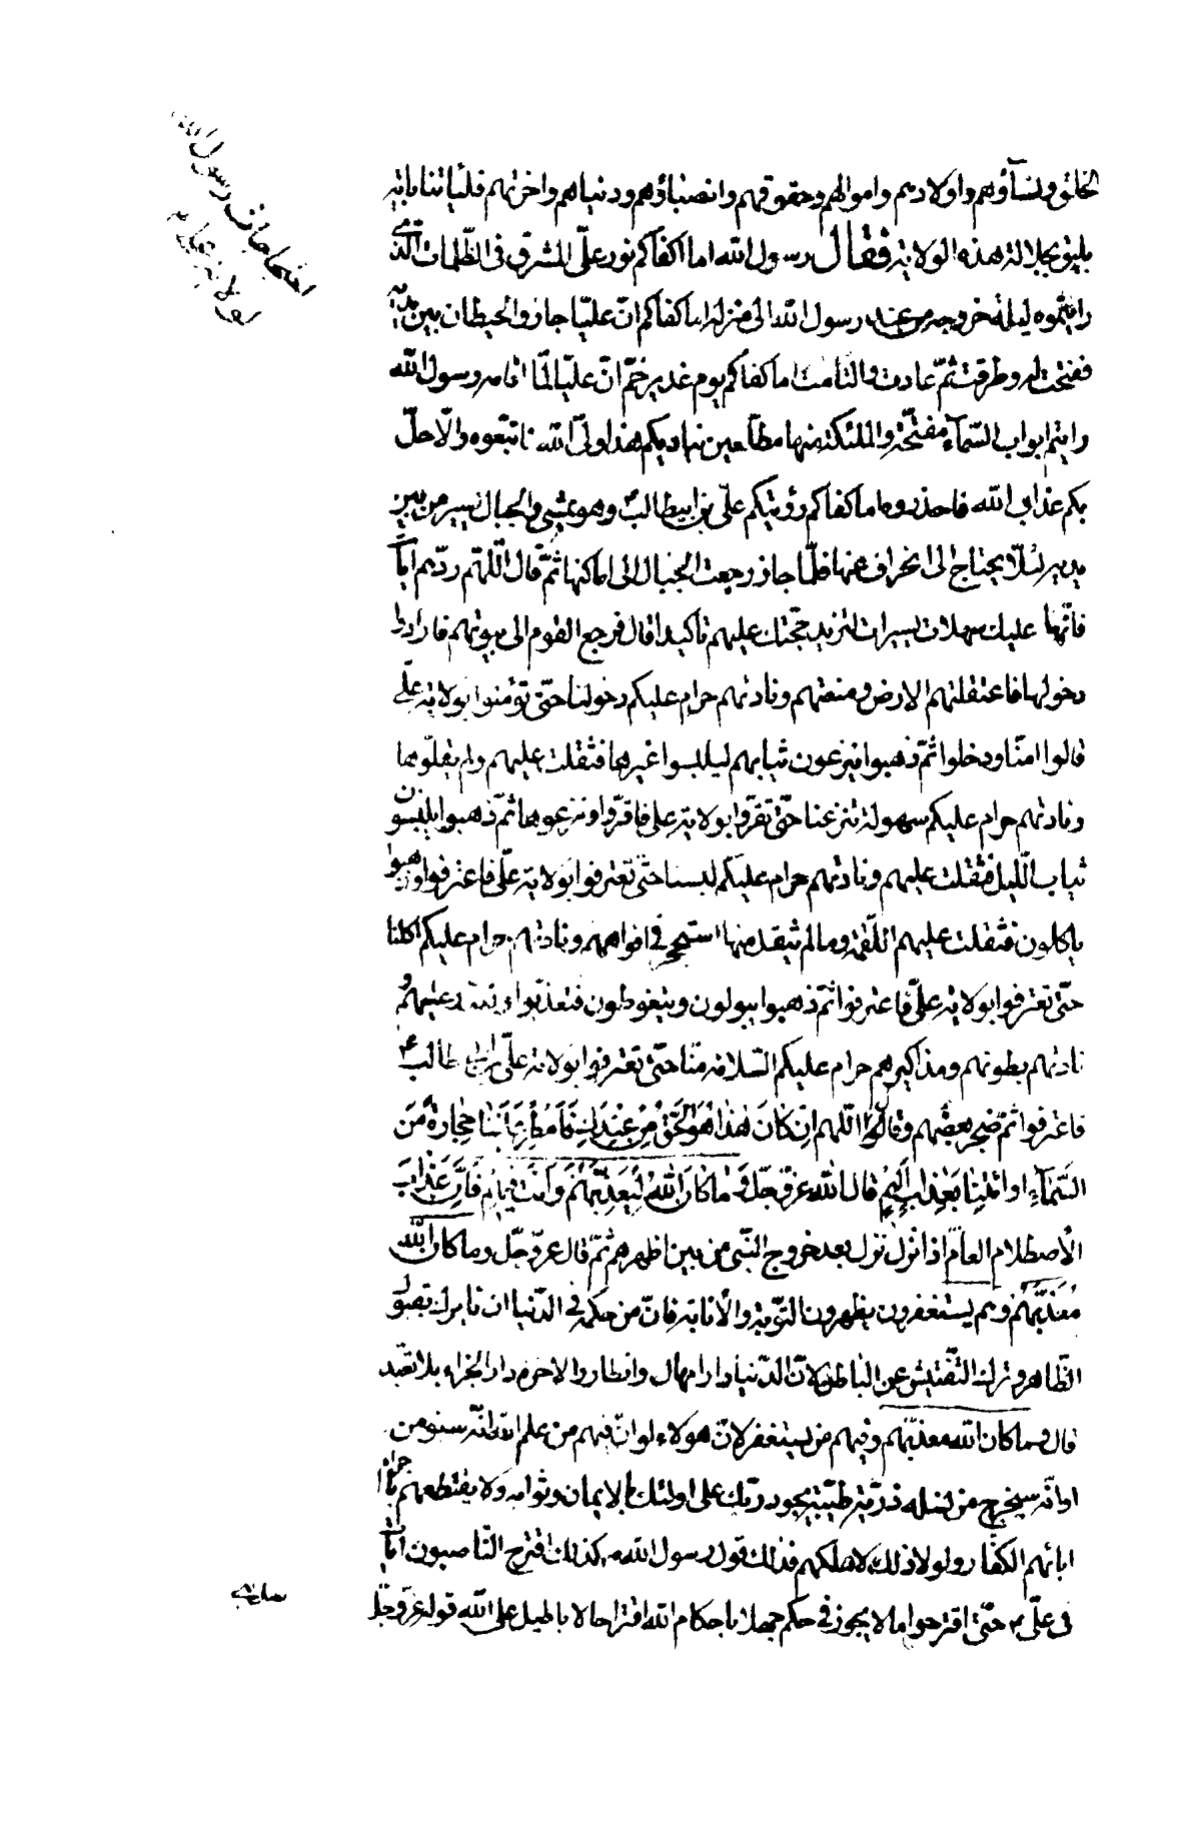 الخلق ونسآؤهم واولادهم واموالهم وحقوقهم وانصباؤهم ودنياهم واخرتهم فليأتنا باية
يليق بجلالة هذه الولاية فقال رسول الله اما كفاكم نور علىّ المشرق فى الظّلمات الّذى
رايتموه ليلة خروجه من عند رسول الله الى منزله اما كفاكم انّ عليّا جاز والحيطان بين يديه
ففتحت له وطرقت ثمّ عادت والتأمت اما كفاكم يوم غدير خمّ انّ عليّا لمّا اقامه رسول الله
رايتم ابواب السّمآء مفتّحة والملئكة منها مطّلعين تناديكم هذا ولىّ الله فاتّبعوه والّا حلّ
بكم عذاب الله فاحذروه اما كفاكم رؤيتكم علىّ بن ابيطالب ع وهو يمشى والجبال يسير من بين
يديه لئلّا يحتاج الى انحراف عنها فلمّا جاز رجعت الجبال الى اماكنها ثمّ قال اللّهمّ زدهم اياتا
فانّها عليك سهلات يسيرات لتزيد حجّتك عليهم تاكيدا قال فرجع القوم الى بيوتهم فارادوا
دخولها فاعتقلتهم الارض ومنعتهم ونادتهم حرام عليكم دخولنا حتّى تؤمنوا بولاية علىّ
قالوا امنّا ودخلوا ثمّ ذهبوا ينزعون ثيابهم ليلبسوا غيرها فثقلت عليهم ولم يقلّوها
ونادتهم حرام عليكم سهولة نزعنا حتّى تقرّوا بولاية على فاقرّوا ونزعوها ثمّ ذهبوا يلبسون
ثياب اللّيل فثقلت عليهم ونادتهم حرام عليكم لبسنا حتّى تعترفوا بولاية علىّ فاعترفوا وذهبوا
ياكلون فثقلت عليهم اللّقمة وما لم يثقل منها استحجر فى افواههم ونادتهم حرام عليكم اكلنا
حتّى تعترفوا بولاية علىّ فاعترفوا ثمّ ذهبوا يبولون ويتغوطون فتعذّبوا وتعذر عليهم و
نادتهم بطونهم ومذاكيرهم حرام عليكم السّلامة منّا حتّى تعترفوا بولاية علىّ بن ابى طالب ع
فاعترفوا ثمّ ضجر بعضهم وقالوا اللّهم ان كَانَ هٰذَا هُوَ الْحَقَّ مِنْ عِنْدِكَ فَاَمْطِرْ عَلَيْنَا حِجَارَةً مِنَ
السَّمَآءِ اَوِ ائْتِنَا بِعَذَابٍ اَلِيمٍ قال الله عزّ وجلّ وَ مَا كَانَ اللهُ لِيُعَذِّبَهُمْ وَ اَنْتَ فِيهِمْ فَاِنَّ عَذَابَ
الأصطلام العامّ اذا نزل نزل بعد خروج النّبى من بين اظهرهم ثمّ قال عزّ وجلّ وما كان الله
مُعَذِّبَهُمْ وهم يستغفرون يظهرون التّوبة والأنابة فانّ من حكمه فى الدّنيا ان يامرك بقبول
الظّاهر وترك التّفتيش عن الباطن لانّ الدّنيا دار امهال وانظار والاخرة دار الجزاء بلا تعّبد
قال وما كان الله معذّبهم وفيهم من يستغفر لانّ هؤلاء لو انّ فيهم من علم الله انّه سيؤمن
او انّه سيخرج من نسله ذرّية طيّبة يجود ربّك على اولئك بالايمان وثوابه ولا يقتطعهم باخترام
ابائهم الكفّار ولولا ذلك لاهلكهم فذلك قول رسول الله ص كذلك اقترح النّاصبون اياتا
فى علىّ ع حتّى اقترحوا ما لا يجوز فى حكم جهلا باحكام الله اقتراحا لا باطيل على الله قوله عزّ وجلّ